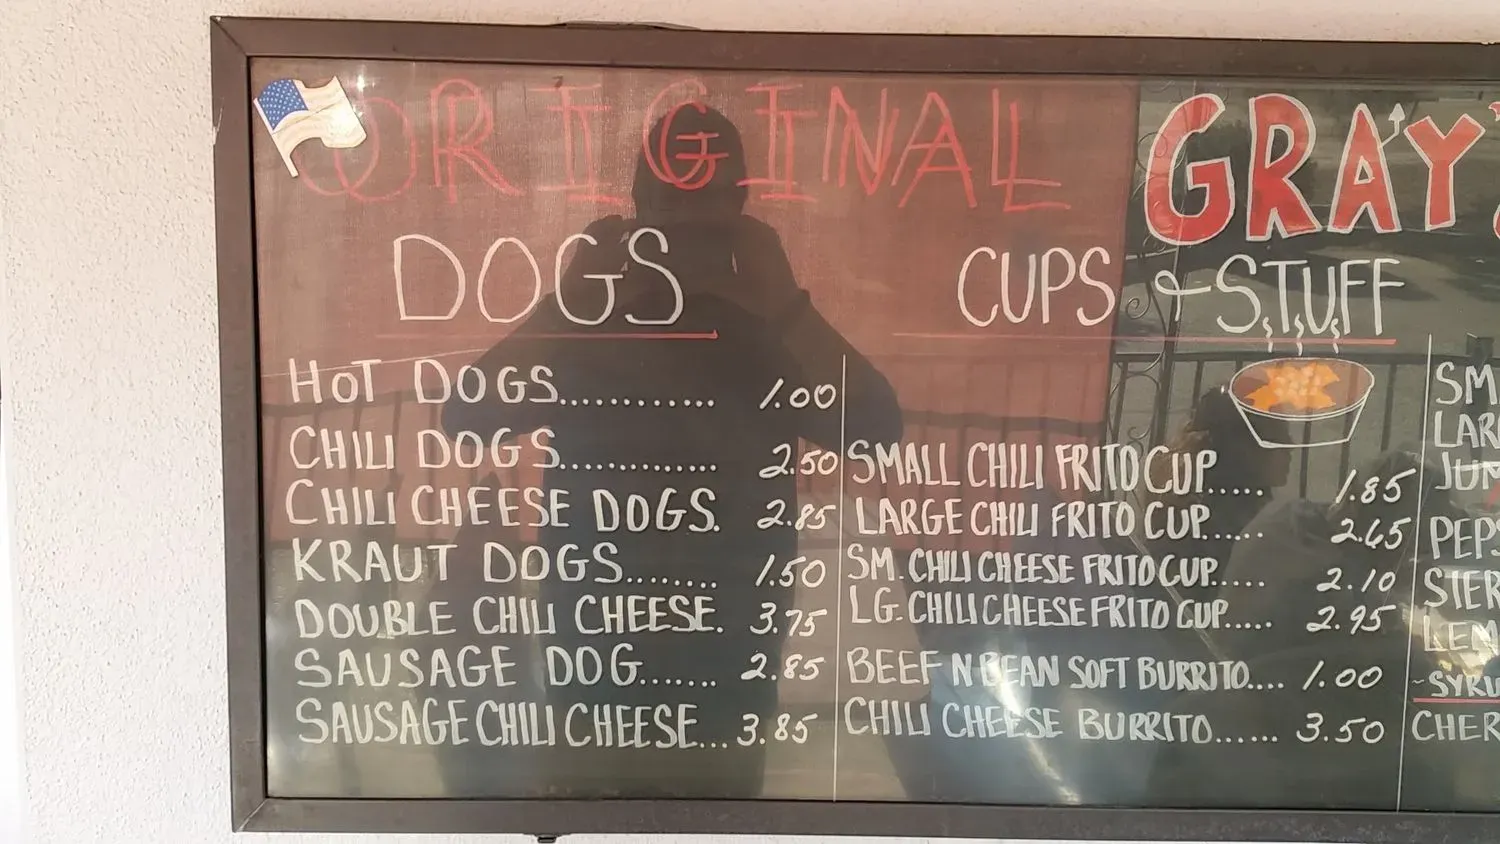 ORIGINAL GRAY'S
DOGS
HOT DOGS............ 1.00
CHILI DOGS.............. 2.50
CHILI CHEESE DOGS. 2.85
KRAUT DOGS........ 1.50
DOUBLE CHILI CHEESE. 3.75
SAUSAGE DOG....... 2.85
SAUSAGE CHILI CHEESE... 3.85
CUPS & STUFF
SMALL CHILI FRITO CUP..... 1.85
LARGE CHILI FRITO CUP...... 2.65
SM. CHILI CHEESE FRITO CUP..... 2.10
LG. CHILI CHEESE FRITO CUP..... 2.95
BEEF N BEAN SOFT BURRITO.... 1.00
CHILI CHEESE BURRITO...... 3.50
SM
LAR
JUM
PEPS
SIER
LEM
~SYRU
CHER